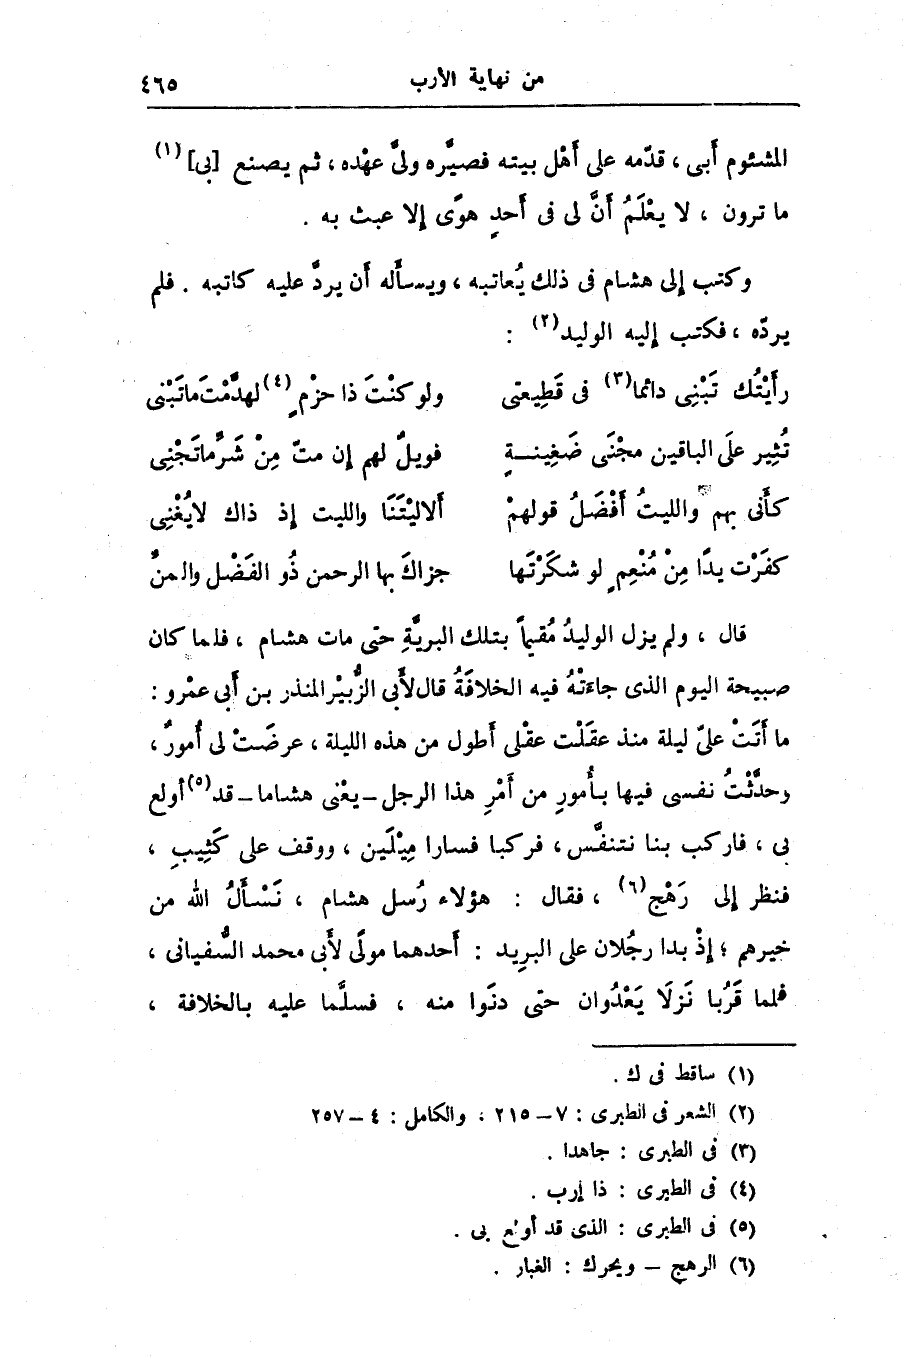 من نهاية الأرب ٤٦٥
المشئوم أبى ، قدّمه على أهْل بيته فصيَّره ولىَّ عهْده ، ثم يصنع [بى] (١)
ما ترون ، لا يعْلَمُ أنَّ لى فى أحدٍ هوًى إلا عبث به .
وكتب إلى هشام فى ذلك يُعاتبه ، ويسأله أن يردَّ عليه كاتبه . فلم
يردّه ، فكتب إليه الوليد (٢) :
رأيْتُك تَبْنِى دائما (٣) فى قَطِيعتى ولو كنْتَ ذا حزْمٍ (٤) لهدَّمْتَ ماتَبْنى
تُثِير علَى الباقين مجْنَى ضَغِينـةٍ فويلٌ لهم إن متّ مِنْ شَرِّماتَجْنِى
كأنى بهم والليتُ أفْضَلُ قولهمْ ألاليْتَنَا والليت إذ ذاك لايُغْنِى
كفَرْت يدًا مِنْ مُنْعِمٍ لو شكَرْتَها جزاكَ بها الرحمن ذُو الفَضْل والمنِّ
قال ، ولم يزل الوليدُ مُقيماً بتلك البريَّةِ حتى مات هشام ، فلما كان
صبيحة اليوم الذى جاءتْهُ فيه الخلافَةُ قال لأبى الزُّبيْر المنذر بن أبى عمْرو :
ما أتَتْ علىّ ليلة منذ عقَلْت عقْلى أطول من هذه الليلة ، عرضَتْ لى أمورٌ ،
وحدَّثْتُ نفسى فيها بأُمورٍ من أمْرِ هذا الرجل – يعْنى هشاما – قد (٥) أولع
بى ، فاركب بنا نتنفَّس ، فركبا فسارا مِيْلَين ، ووقف على كَثِيبٍ ،
فنظر إلى رَهْج (٦) ، فقال : هؤلاء رُسل هشام ، نَسْألُ الله من
خيرهم ؛ إذْ بدا رجُلان على البريد : أحدهما مولًى لأبى محمد السُّفيانى ،
فلما قَرُبا نَزلَا يَعْدُوان حتى دنَوا منه ، فسلَّما عليه بالخلافة ،
(١) ساقط فى ك .
(٢) الشعر فى الطبرى : ٧ – ٢١٥ ، والكامل : ٤ – ٢٥٧
(٣) فى الطبرى : جاهدا .
(٤) فى الطبرى : ذا إرب .
(٥) فى الطبرى : الذى قد أولع بى .
(٦) الرهج – ويحرك : الغبار .